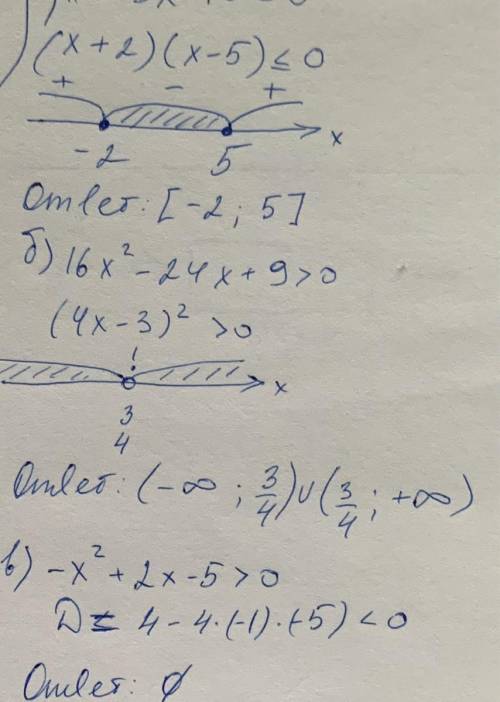 (x+2)(x-5)≤0
+ - +
-2 5 x
Ответ: [-2; 5]
б) 16x²-24x+9>0
(4x-3)²>0
x
3
4
Ответ: (-∞; 3/4)∪(3/4; +∞)
в) -x²+2x-5>0
D = 4-4·(-1)·(-5)<0
Ответ: ∅